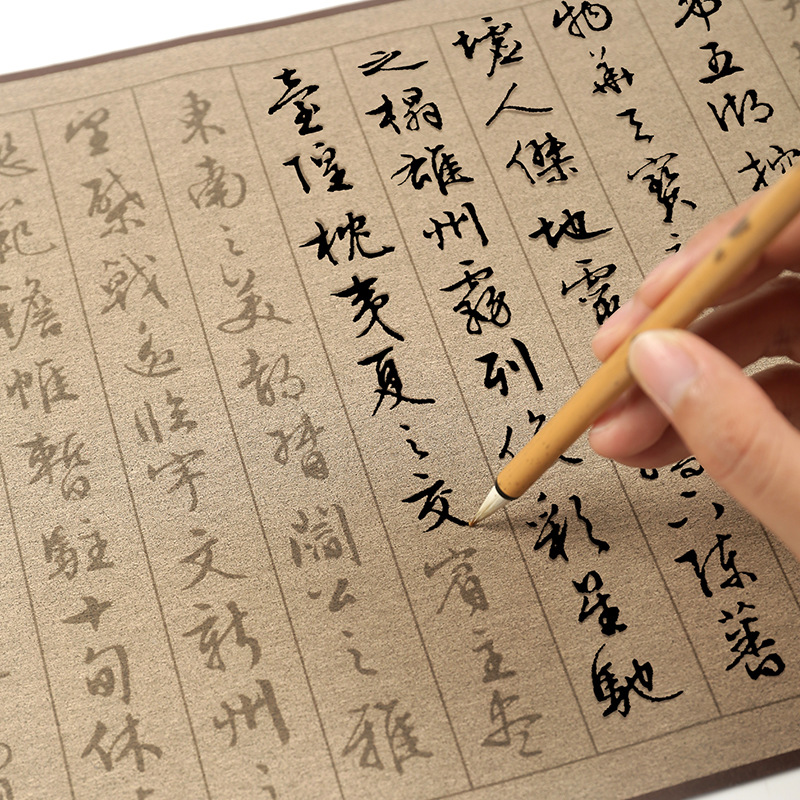 帶五湖控
物華天寶
墟人傑地靈孺下陳蕃
之榻雄州霧列俊彩星馳
臺隍枕夷夏之交賓主盡
東南之美都督閻公之雅
望棨戟遙臨宇文新州之
範襜帷暫駐十旬休